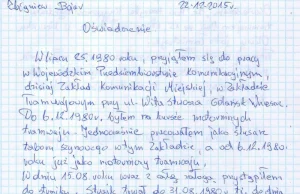 Zbigniew Bojov 22.12.2015r.
Oświadczenie
W lipcu 25.1980 roku, przyjąłem się do pracy
w Wojewódzkim Przedsiębiorstwie Komunikacyjnym,
dzisiaj Zakład Komunikacji Miejskiej, w Zakładzie
Tramwajowym przy ul. Wita Stwosza Gdańsk Wrzeszcz.
Do 6.12.1980r. byłem na kursie motorniczych
tramwaju. Jednocześnie pracowałem jako ślusarz
taboru szynowego w tym Zakładzie, a od 6.12.1980
roku już jako motorniczy tramwaju.
W dniu 15.08 roku wraz z całą załogą przystąpiłem
do strajku. Strajk trwał do 31.08.1980 r. do dnia